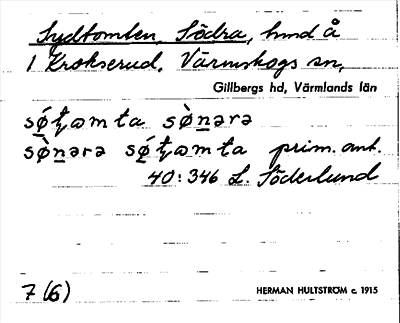 Sydtomten, Södra, hmd å
1 Krokserud. Värmskogs sn,
Gillbergs hd, Värmlands län
sǿţɷmta sø̀nərə
sø̀nərə sǿţɷmta prim. ant.
40:346 L. Söderlund
7 (6)
HERMAN HULTSTRÖM c. 1915